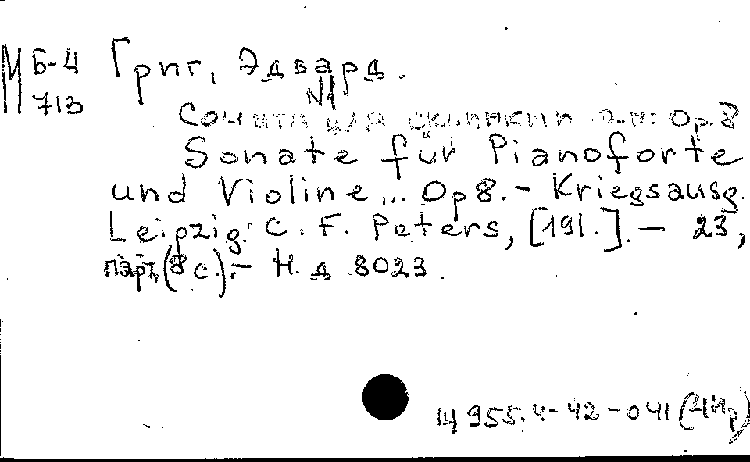 М Б-4 Григ, Эдвард.
713
№1
Соната для скрипки и ф-п. Op. 8
Sonate für Pianoforte
und Violine... Op 8. - Kriegsausg.
Leipzig: C. F. Peters, [191.]. - 23,
парт. (8 с.). - Н. д. 8023.
Щ 955.4-42-041